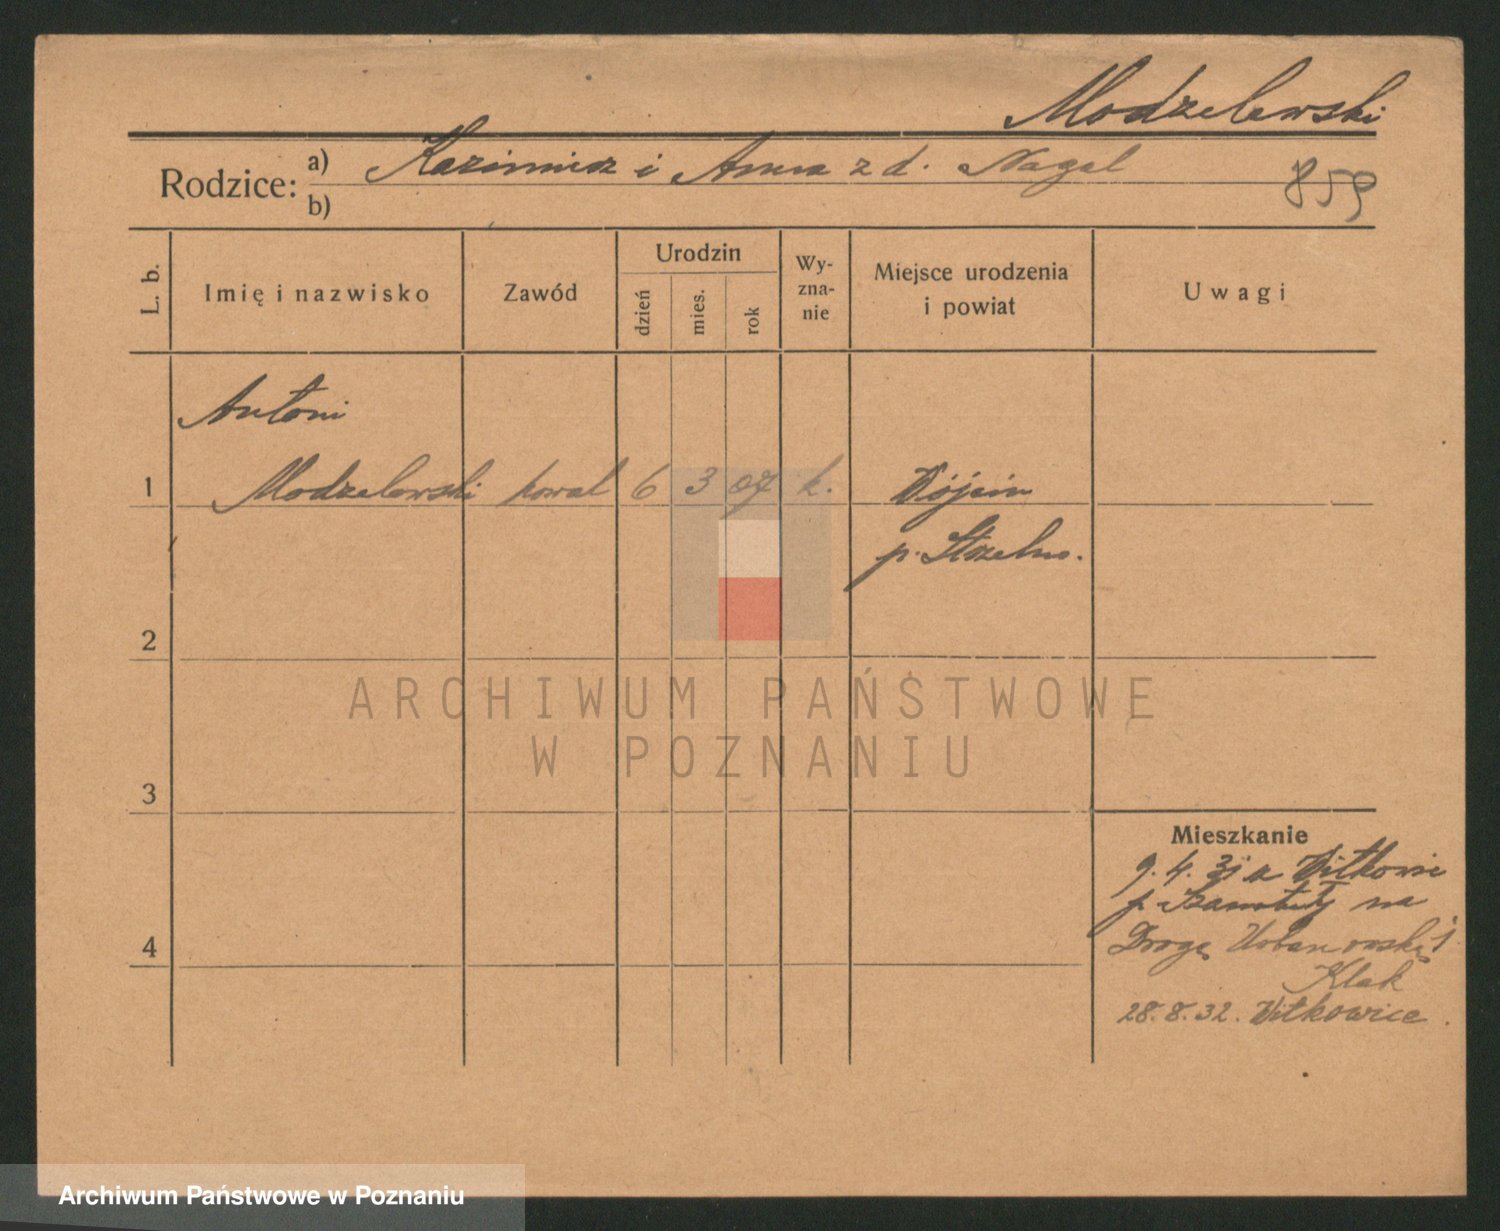 Modzelewski
Rodzice: a) Kazimierz i Anna z d. Nagel
b)
859
L. b.
Imię i nazwisko
Zawód
Urodzin
dzień
mies.
rok
Wy-
zna-
nie
Miejsce urodzenia
i powiat
Uwagi
Antoni
1 Modzelewski kowal 6 3 07 k. Wójcin
p. Strzelno.
2
ARCHIWUM PAŃSTWOWE
W POZNANIU
3
Mieszkanie
9. 4. 31 z Witkowic
p. Szamotuły na
4 Drogę Urbanowską 1
Klak
28. 8. 32. Witkowice.
Archiwum Państwowe w Poznaniu